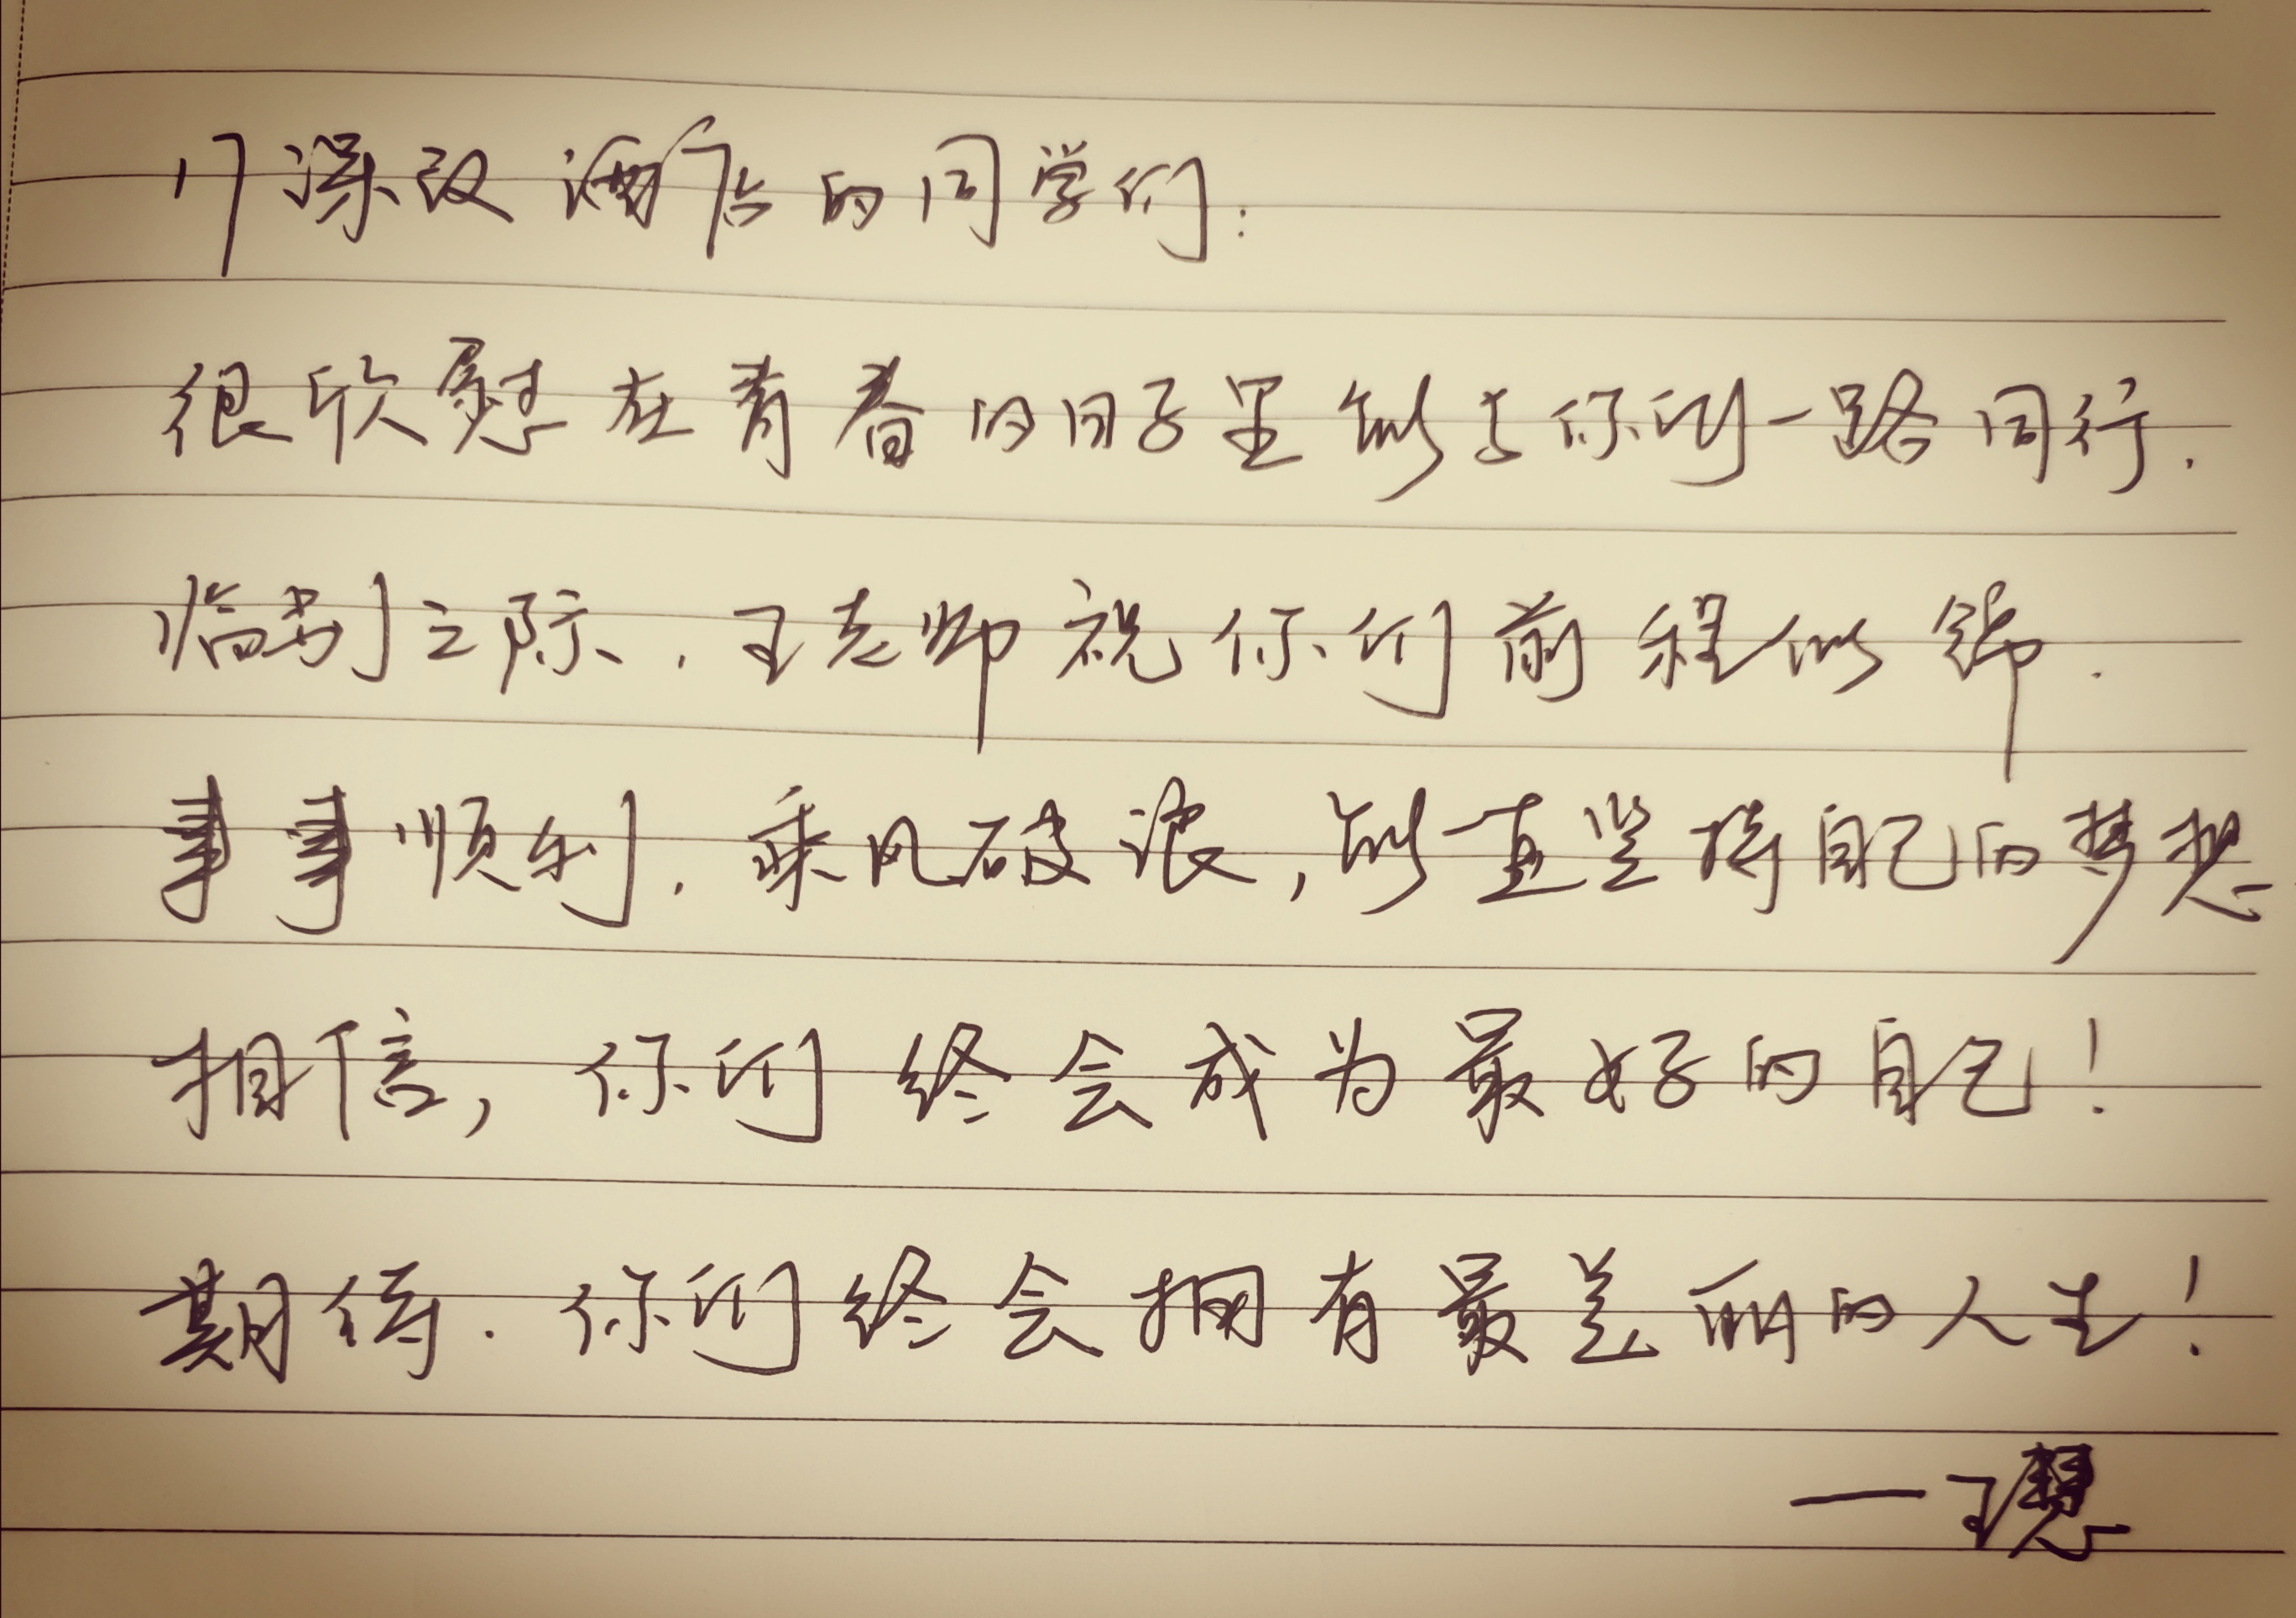 17深汉酒店的同学们:
很欣慰在青春的日子里能与你们一路同行.
临别之际、.王老师祝你们前程似锦.
事事顺利.乘风破浪,能一直坚持自己的梦想
相信,你们终会成为最好的自己!
期待.你们终会拥有最美丽的人生!
—王慧